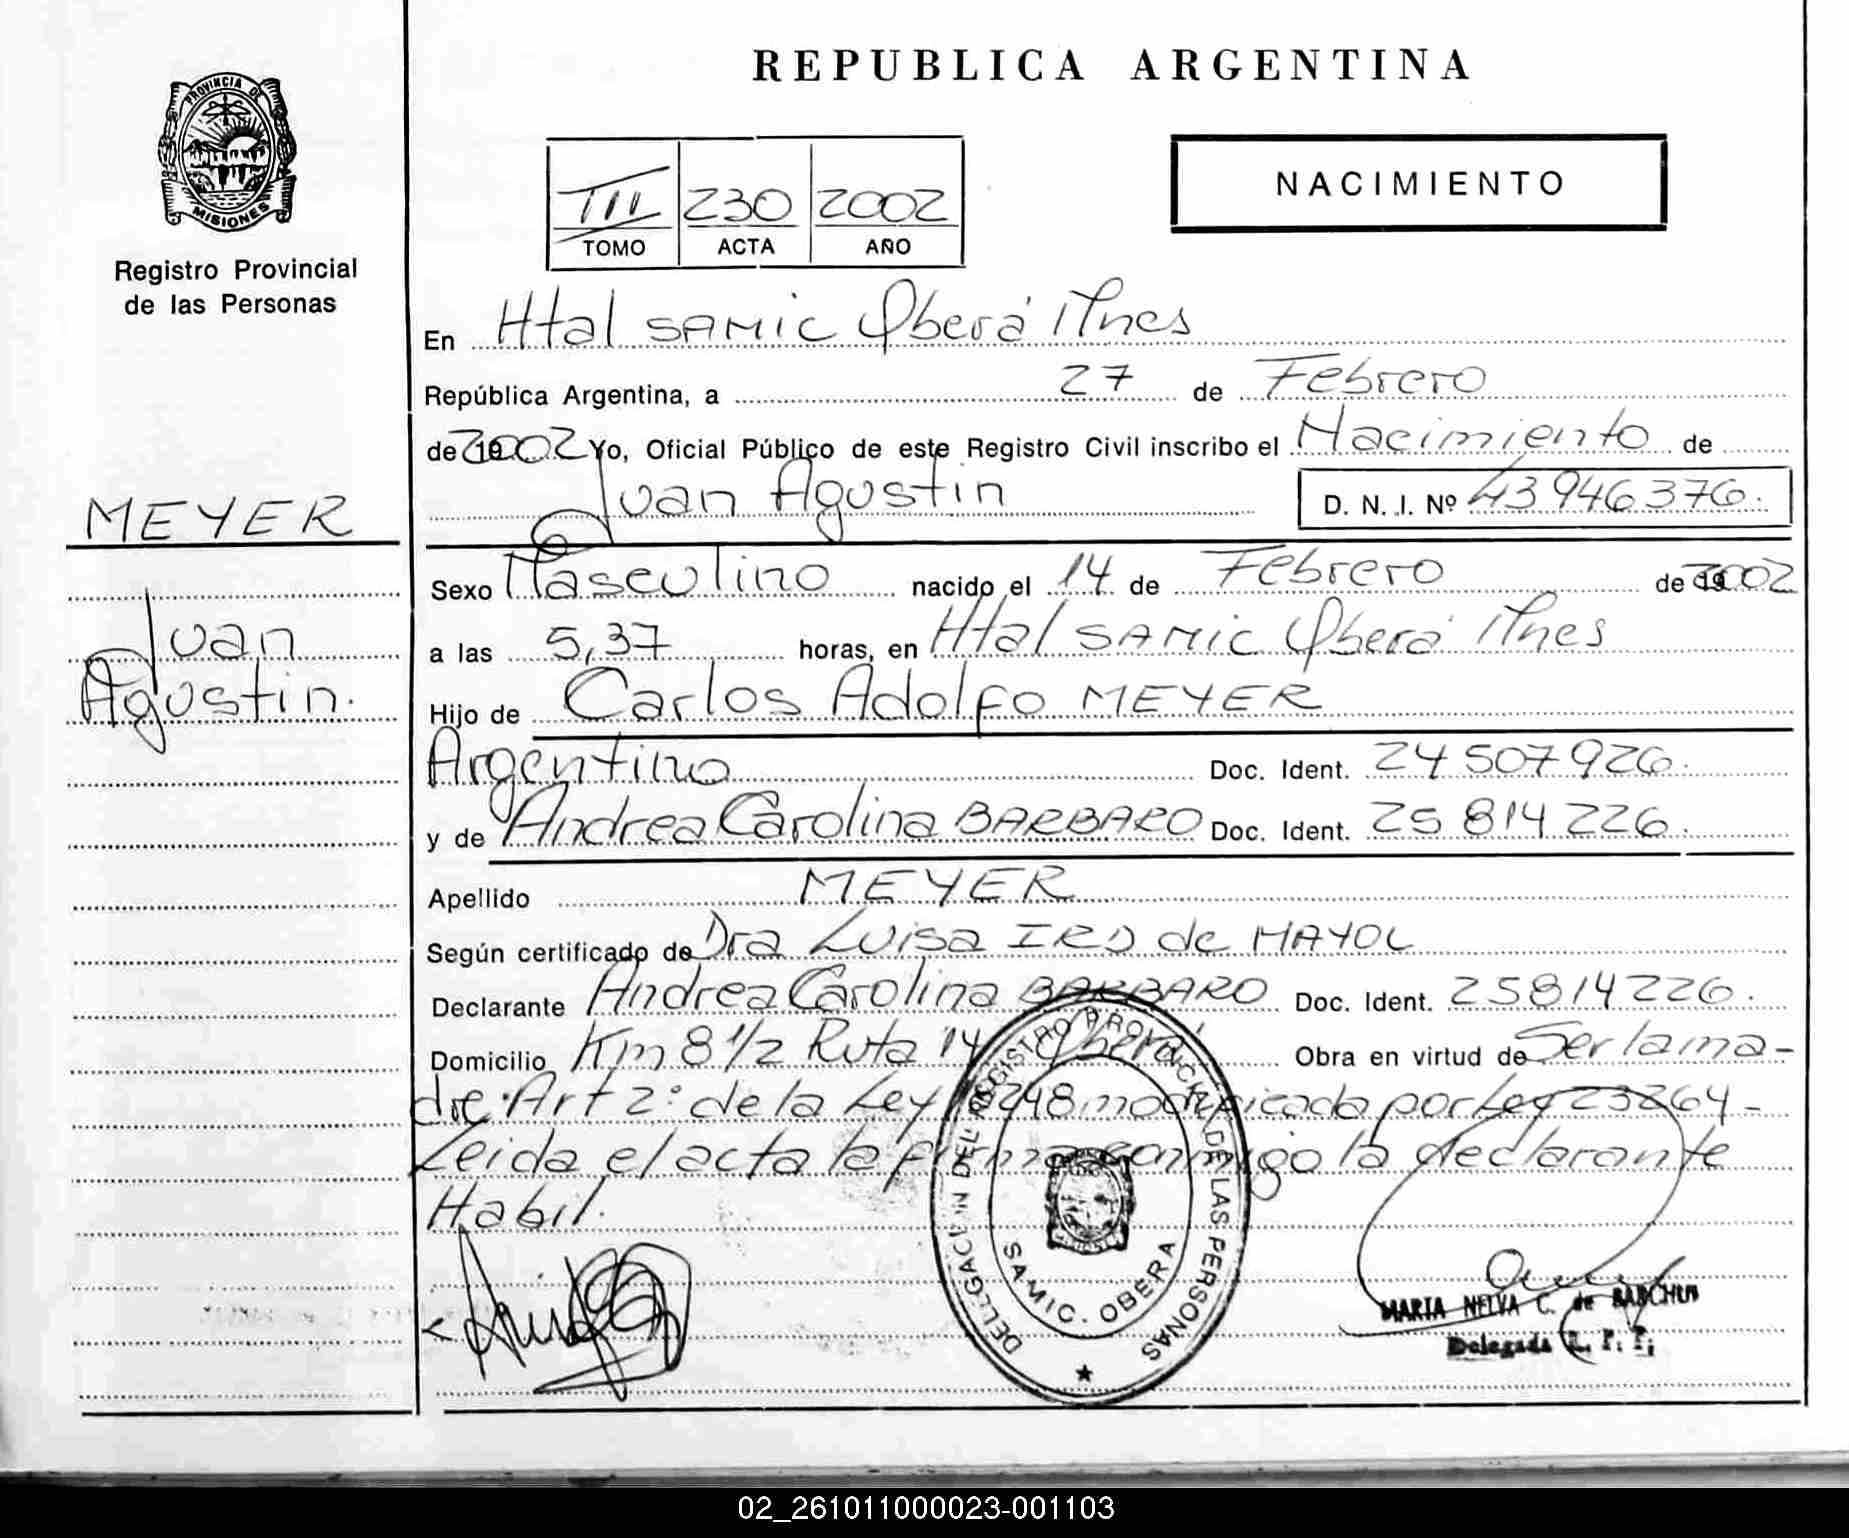 REPUBLICA ARGENTINA
PROVINCIA DE
MISIONES
Registro Provincial
de las Personas
MEYER
Juan
Agustin.
III 230 2002
TOMO ACTA AÑO
NACIMIENTO
En Htal SAMIC Oberá Mnes
República Argentina, a 27 de Febrero
de 2002 Yo, Oficial Público de este Registro Civil inscribo el Nacimiento de
Juan Agustin D. N. I. Nº 43946376.
Sexo Masculino nacido el 14 de Febrero de 2002
a las 5,37 horas, en Htal SAMIC Oberá Mnes
Hijo de Carlos Adolfo MEYER
Argentino Doc. Ident. 24 507 926.
y de Andrea Carolina BARBARO Doc. Ident. 25 814 226.
Apellido MEYER
Según certificado de Dra Luisa de MAYOL
Declarante Andrea Carolina BARBARO Doc. Ident. 25814226.
Domicilio Km 8 1/2 Ruta 14 Oberá Obra en virtud de Ser la ma-
dre. Art 2º de la Ley 18248 modificada por Ley 23264 -
Leida el acta la firma conmigo la declarante
Habil.
DELEGACION DEL REGISTRO PROVINCIAL DE LAS PERSONAS
SAMIC. OBERA
MARIA NELVA C. de
Delegada R. P. P.
02_261011000023-001103